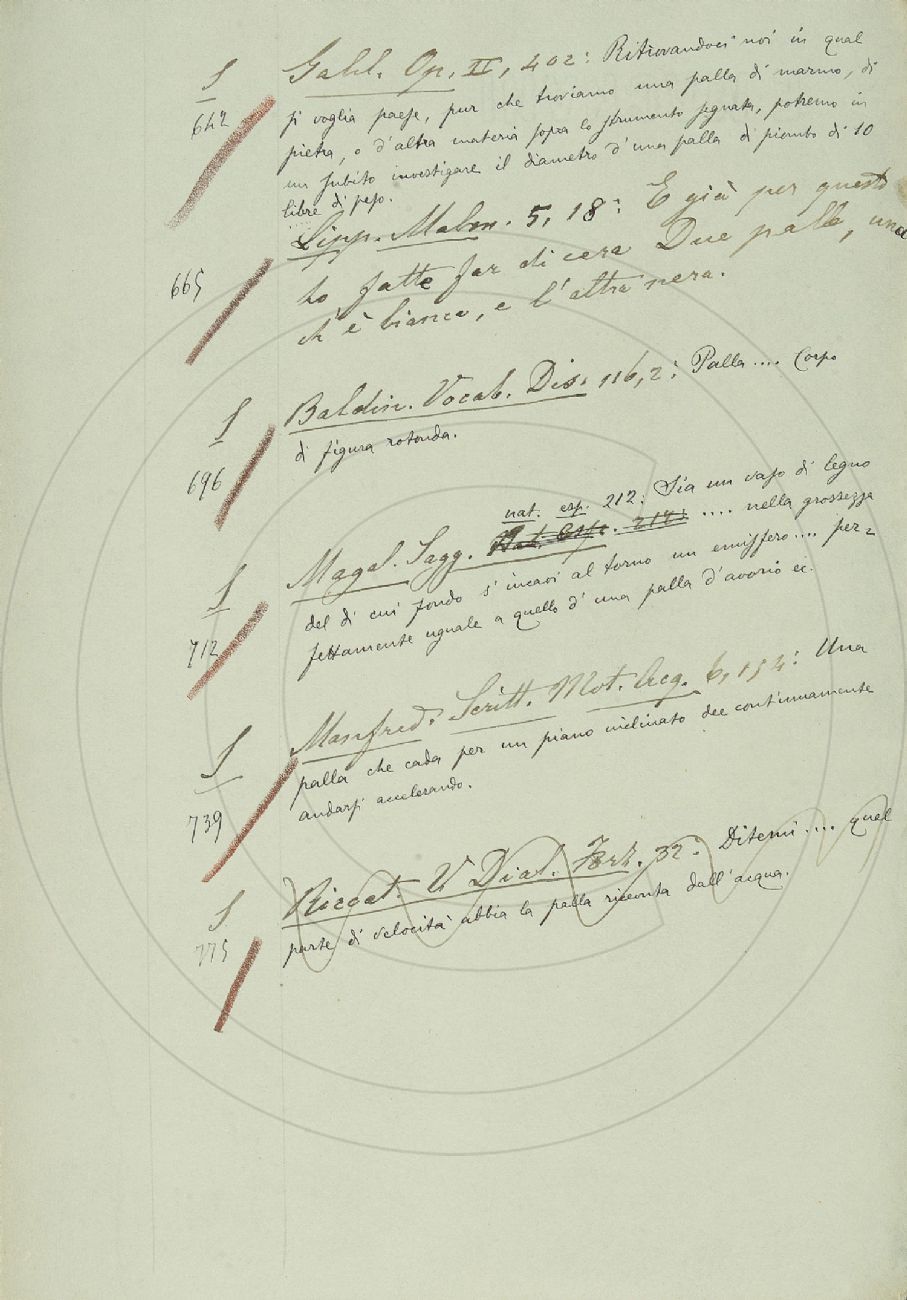 S
642
Galil. Op. II, 402: Ritrovandoci noi in qual
si voglia paese, pur che troviamo una palla di marmo, di
pietra, o d'altra materia sopra lo strumento segnata, potremo in
un subito investigare il diametro d'una palla di piombo di 10
libre di peso.
665
Lipp. Malm. 5, 18: E già per questo
ho fatte far di cera Due palle, una
ch'è bianca, e l'altra nera.
S
696
Baldin. Vocab. Dis. 116, 2: Palla .... Corpo
di figura rotonda.
S
712
Magal. Sagg. nat. esp. 212: Sia un vaso di legno
del di cui fondo s'incavi al torno un emisfero .... nella grossezza
fettamente uguale a quello d'una palla d'avorio ec. .... per=
S
739
Manfred. Scritt. Mot. Acq. 6, 154: Una
palla che cada per un piano inclinato dee continuamente
andarsi accelerando.
S.
775
Riccat. V. Dial. Forz. 32: Ditemi .... quel
parte di velocità abbia la palla ricevuta dall'acqua.